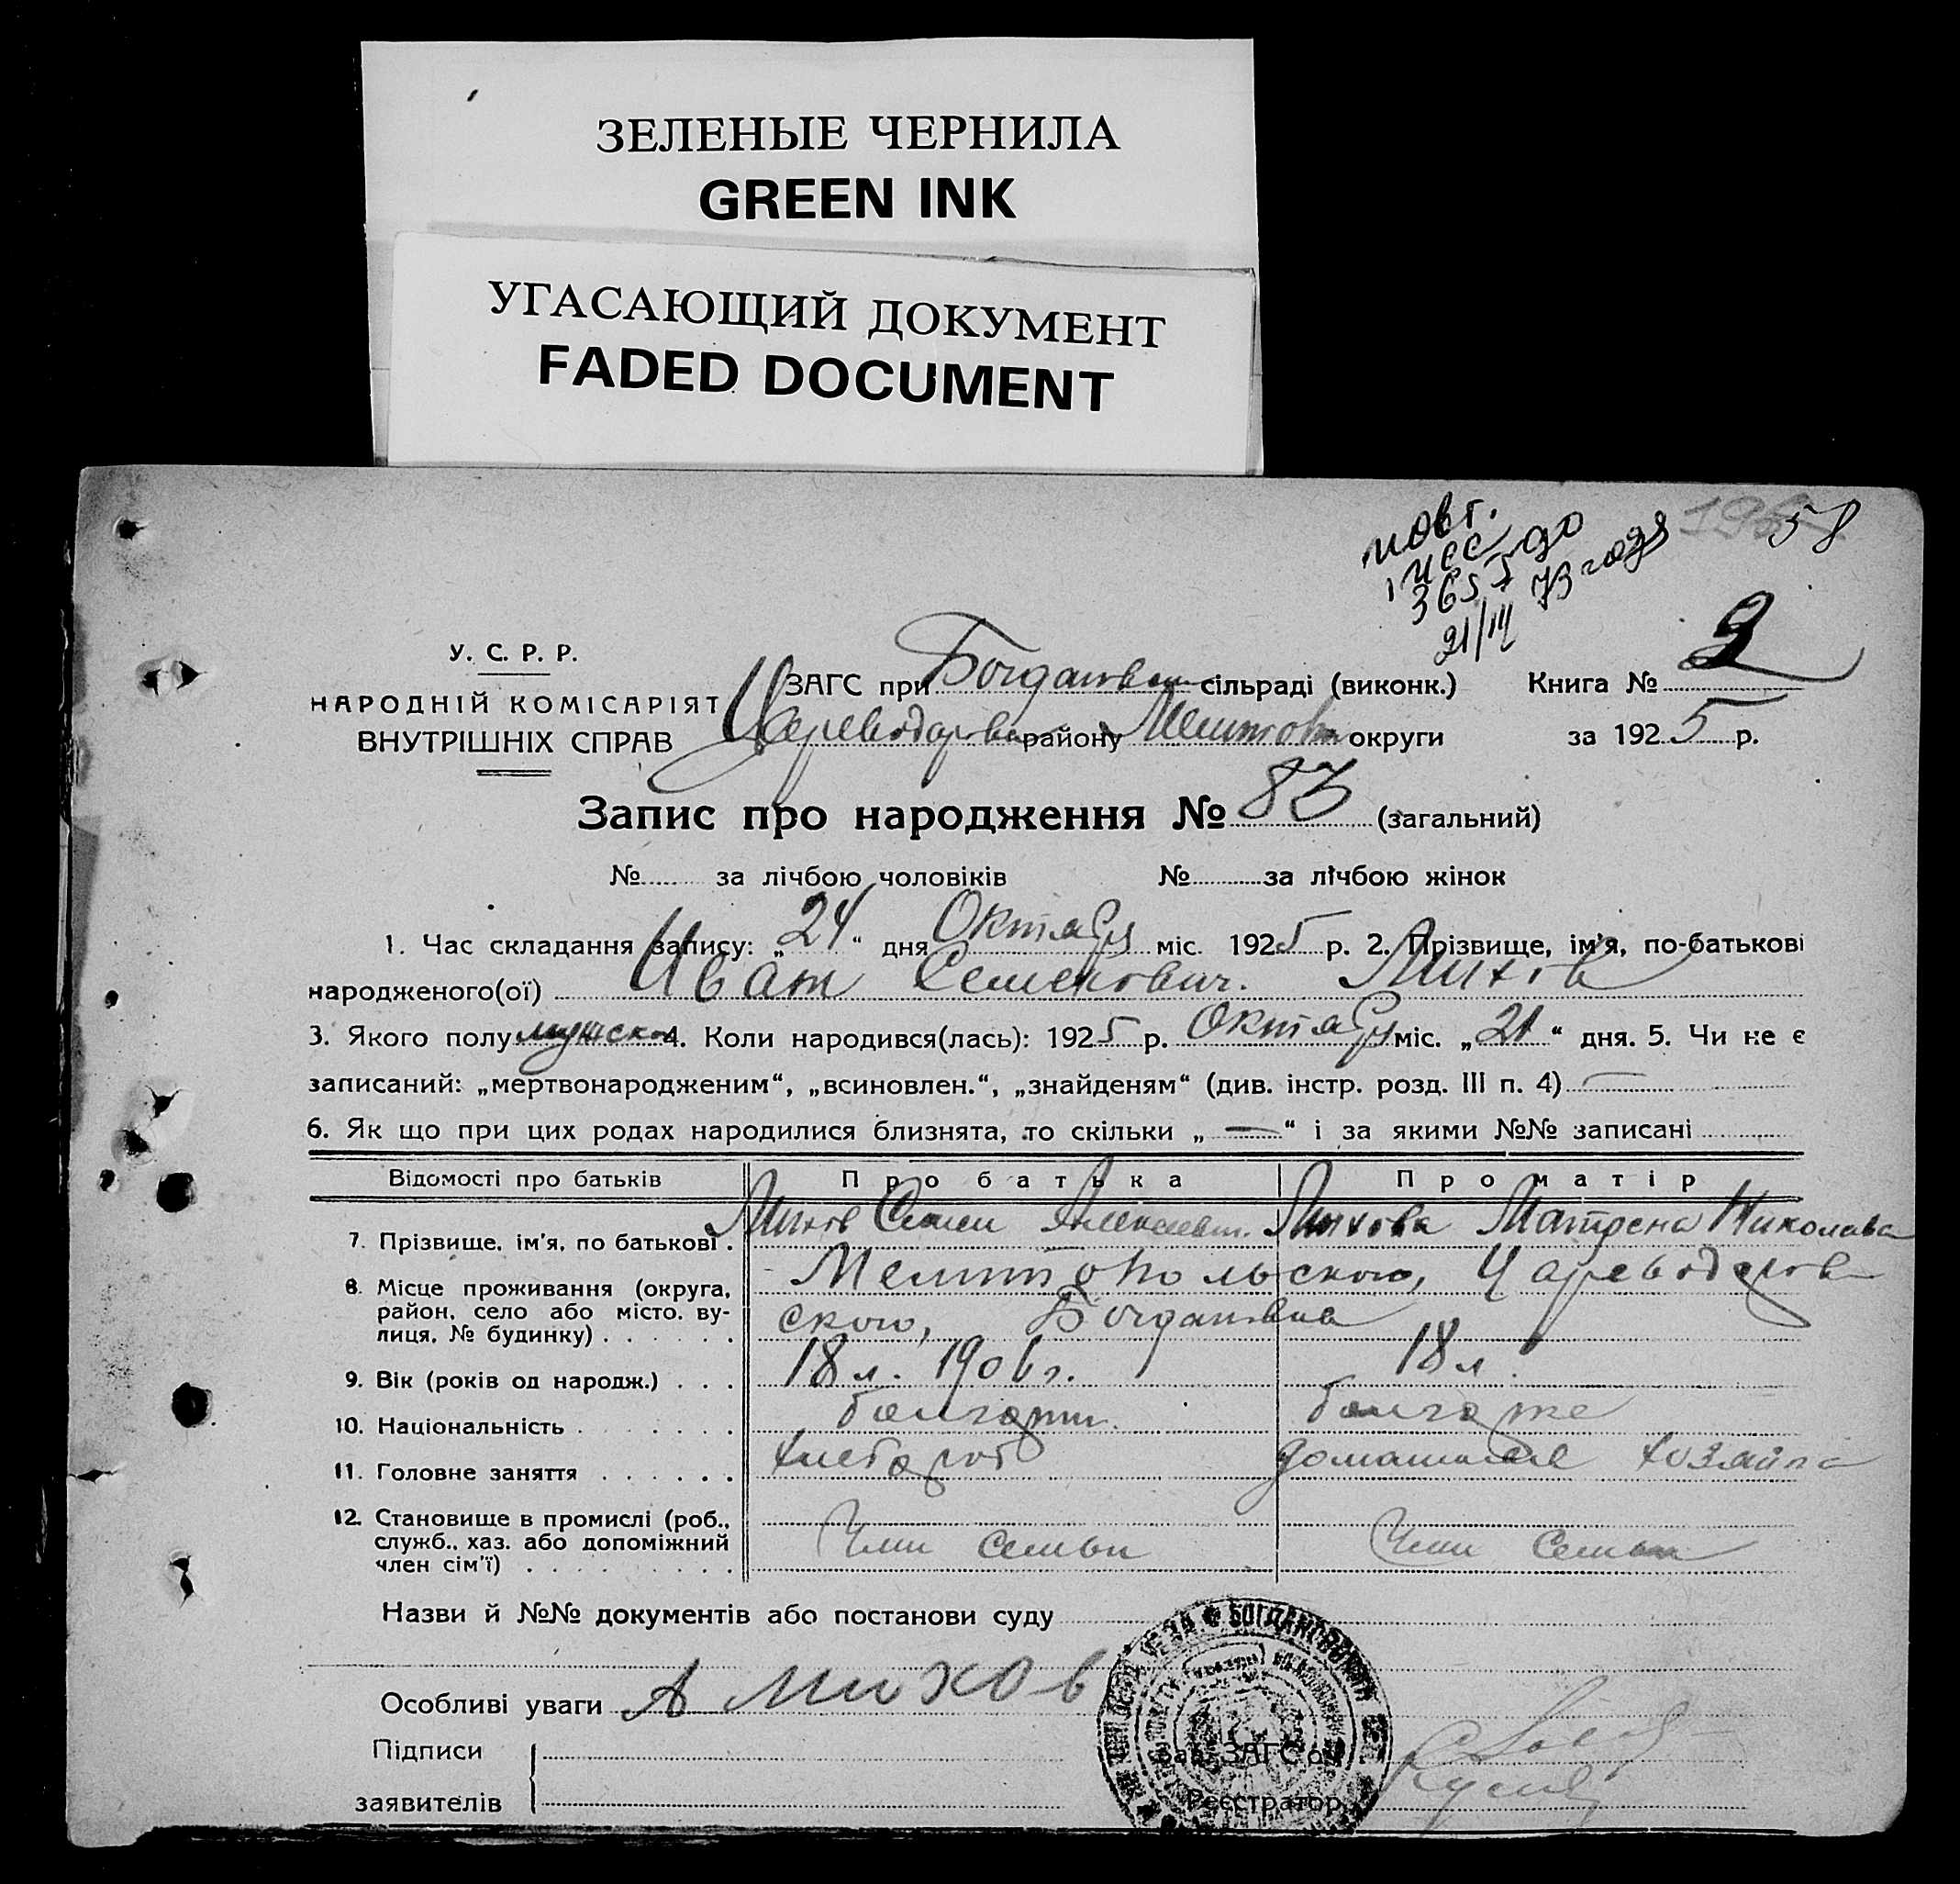 ЗЕЛЕНЫЕ ЧЕРНИЛА
GREEN INK
УГАСАЮЩИЙ ДОКУМЕНТ
FADED DOCUMENT
58
повт.
365 до 73 года
21/III
У. С. Р. Р.
НАРОДНІЙ КОМІСАРІЯТ
ВНУТРІШНІХ СПРАВ
ЗАГС при Богдановск сільраді (виконк.) Книга № 2
Цареводаровск району Мелитов округи за 1925 р.
Запис про народження № 83 (загальний)
№ за лічбою чоловіків № за лічбою жінок
1. Час складання запису: „24“ дня Октября міс. 1925 р. 2. Прізвище, ім'я, по-батькові
народженого(ої) Иван Семенович. Михов
3. Якого полу мужск 4. Коли народився(лась): 1925 р. Октября міс. „21“ дня. 5. Чи не є
записаний: „мертвонародженим“, „всиновлен.“, „знайденям“ (див. інстр. розд. III п. 4) —
6. Як що при цих родах народилися близнята, то скільки „—“ і за якими №№ записані
Відомості про батьків Про батька Про матір
7. Прізвище, ім'я, по батькові Михов Семен Алексеевич. Михова Матрена Николава
8. Місце проживання (округа, район, село або місто, ву-
лиця, № будинку) Мелитопольского, Цареводаров
ского, Богдановка
9. Вік (років од народж.) 18 л. 1906 г. 18 л.
10. Національність болгарин. болгарке
11. Головне заняття хлебороб домашняе хозяйва
12. Становище в промислі (роб.,
служб., хаз. або допоміжний
член сім'ї) Член семьи Член семьи
Назви й №№ документів або постанови суду
Особливі уваги А Михов
Підписи
заявителів
Зав. ЗАГС'ом
Реєстратор